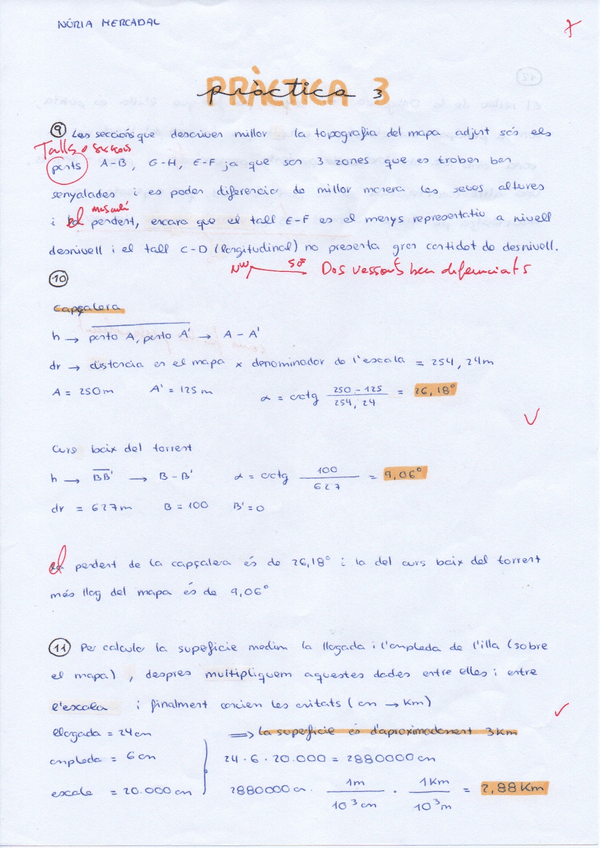 NÚRIA MERCADAL
PRÀCTICA 3
pràctica 3
⑨ Les seccions que descriuen millor la topografia del mapa adjunt són els
Talls o seccions
punts A-B, G-H, E-F ja que son 3 zones que es troben ben
senyalades i es poden diferenciar de millor manera les seves altures
masculí
i el pendent, encara que el tall E-F es el menys representatiu a nivell
desnivell i el tall C-D (longitudinal) no presenta gran cantidat de desnivell.
NW SE Dos vessants ben diferenciats
⑩
Capçalera
h → punto A, punto A' → A - A'
dr → distancia en el mapa x denominador de l'escala = 254,24m
A = 250m A' = 125m α = arctg 250 - 125 / 254,24 = 26,18°
Curs baix del torrent
h → BB' → B - B' α = arctg 100 / 627 = 9,06°
dr = 627m B = 100 B' = 0
el pendent de la capçalera és de 26,18° i la del curs baix del torrent
més lluny del mapa és de 9,06°
⑪ Per calcular la superficie medim la llargada i l'amplada de l'illa (sobre
el mapa), despres multipliquem aquestes dades entre elles i entre
l'escala i finalment canvien les unitats (cm → Km)
llargada = 24cm ⟹ la superficie és d'aproximadament 3Km
amplada = 6cm 24 · 6 · 20.000 = 2880000cm
escala = 20.000cm 2880000cm · 1m / 10³cm · 1Km / 10³m = 2,88 Km